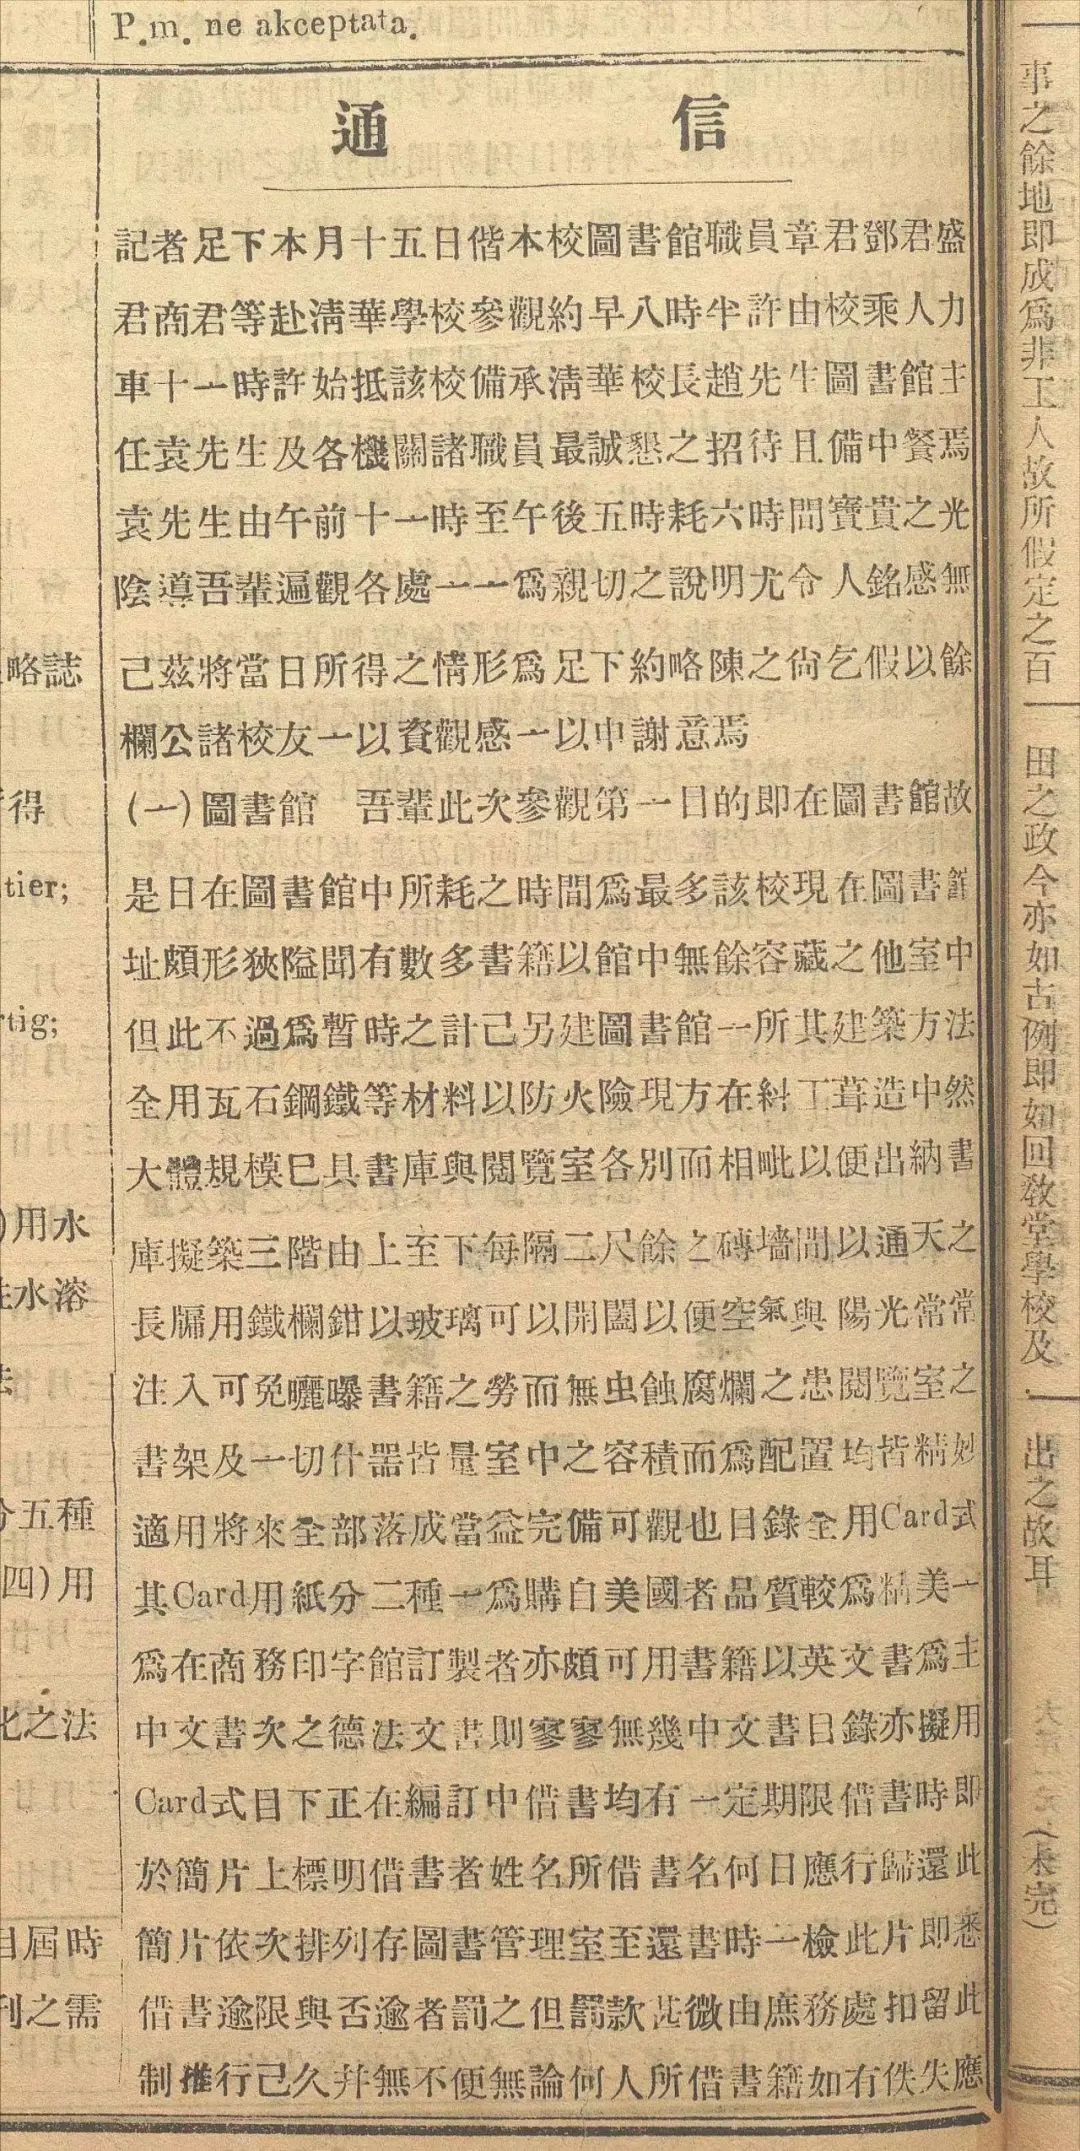 P.m. ne akceptata.
通信
記者足下本月十五日偕本校圖書館職員章君鄧君盛
君商君等赴淸華學校參觀約早八時半許由校乘人力
車十一時許始抵該校備承淸華校長趙先生圖書館主
任袁先生及各機關諸職員最誠懇之招待且備中餐焉
袁先生由午前十一時至午後五時耗六時間寶貴之光
陰導吾輩遍觀各處一一爲親切之說明尤令人銘感無
己茲將當日所得之情形爲足下約略陳之尙乞假以餘
欄公諸校友一以資觀感一以申謝意焉
(一)圖書館　吾輩此次參觀第一目的即在圖書館故
是日在圖書館中所耗之時間爲最多該校現在圖書館
址頗形狹隘聞有數多書籍以館中無餘容藏之他室中
但此不過爲暫時之計己另建圖書館一所其建築方法
全用瓦石鋼鐵等材料以防火險現方在糾工葺造中然
大體規模巳具書庫與閱覽室各別而相毗以便出納書
庫擬築三階由上至下每隔二尺餘之磚墻間以通天之
長牖用鐵欄鉗以玻璃可以開闔以便空氣與陽光常常
注入可免曬曝書籍之勞而無虫蝕腐爛之患閱覽室之
書架及一切什器皆量室中之容積而爲配置均皆精妙
適用將來全部落成當益完備可觀也目錄全用Card式
其Card用紙分二種一爲購自美國者品質較爲精美一
爲在商務印字館訂製者亦頗可用書籍以英文書爲主
中文書次之德法文書則寥寥無幾中文書目錄亦擬用
Card式目下正在編訂中借書均有一定期限借書時即
於簡片上標明借書者姓名所借書名何日應行歸還此
簡片依次排列存圖書管理室至還書時一檢此片即悉
借書逾限與否逾者罰之但罰款甚微由庶務處扣留此
制推行己久幷無不便無論何人所借書籍如有佚失應
事之餘地即成爲非工人故所假定之百
田之政今亦如古例即如回敎堂學校及
出之故耳
(未完)
略誌
得
tier;
rtig;
)用水
水溶
五種
四)用
之法
屆時
之需